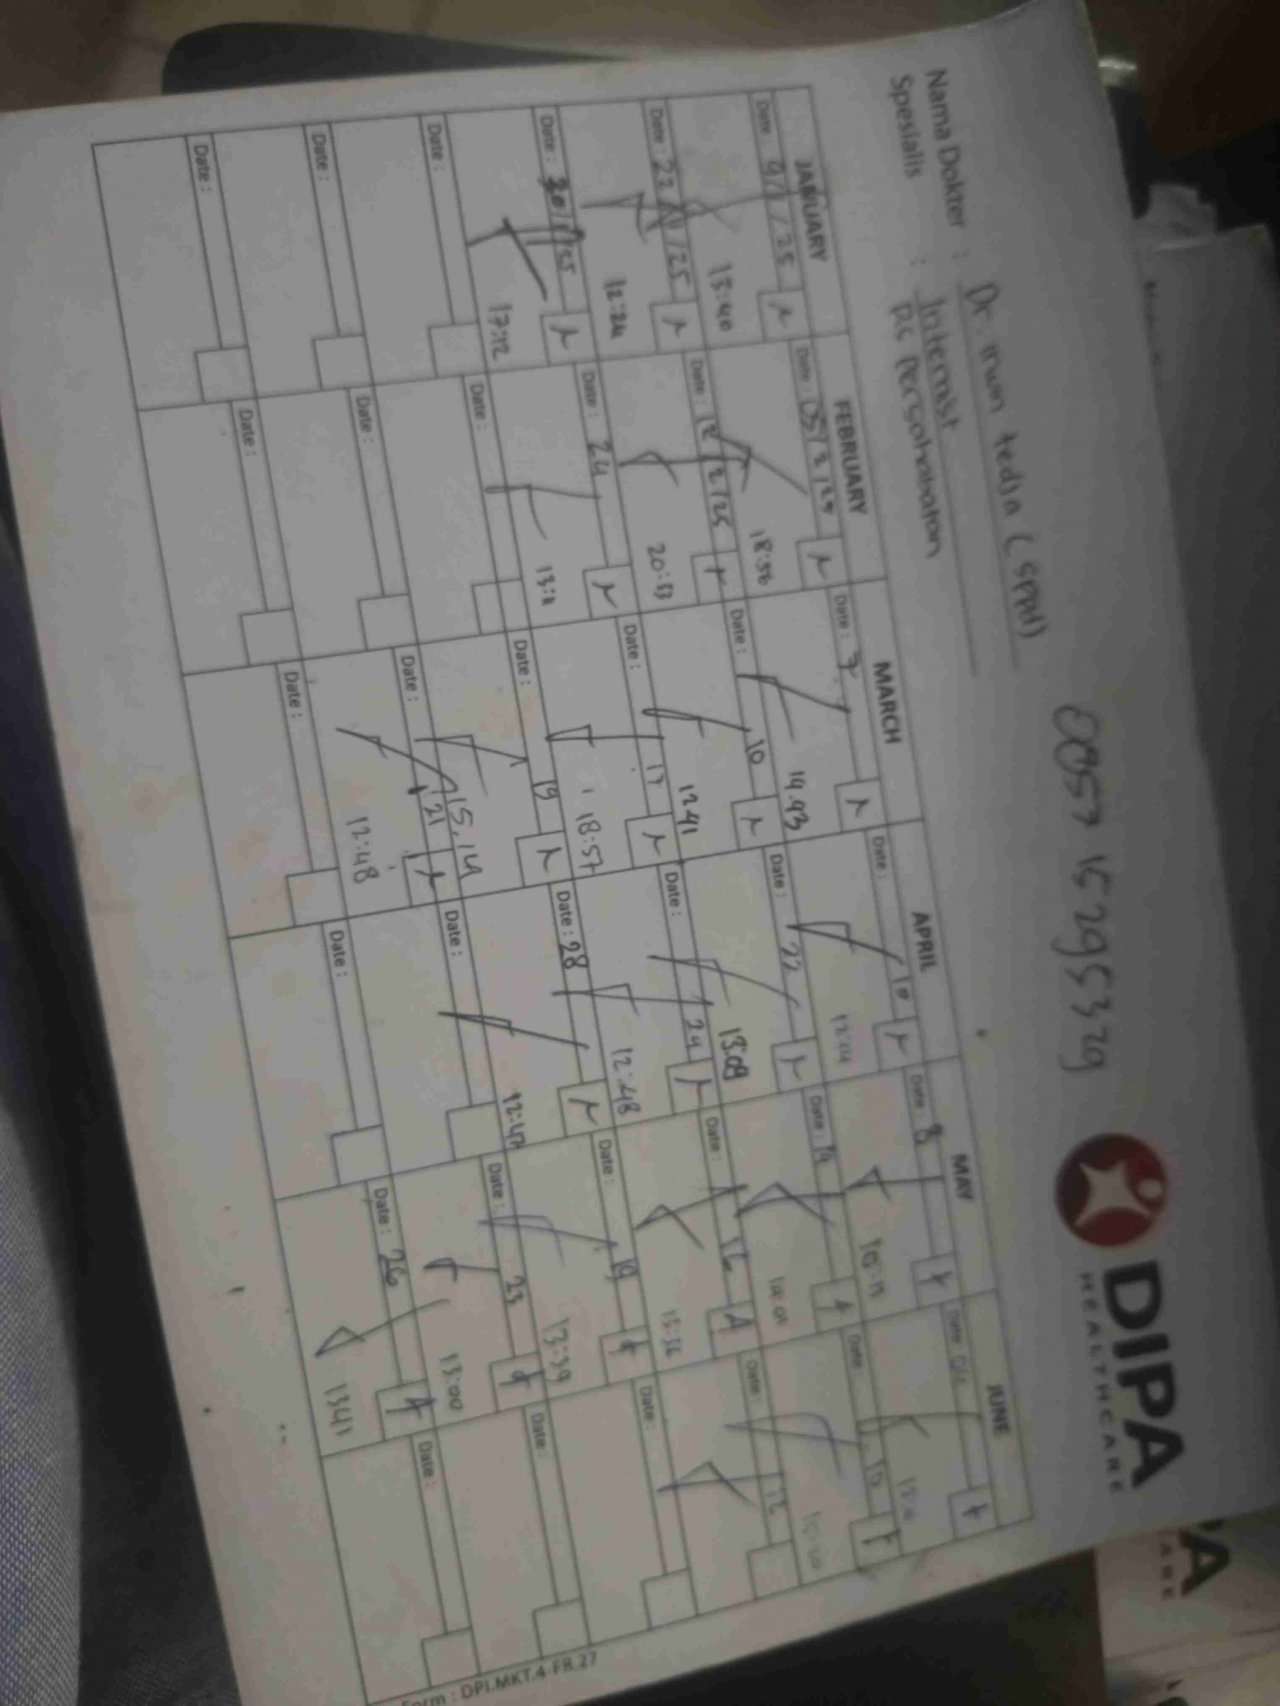 DIPA
HEALTHCARE
0857 15295329
Nama Dokter : Dr. Irwan tedja (SPPD)
Spesialis : Internist
RS Persahabatan
JANUARY FEBRUARY MARCH APRIL MAY JUNE
Date : 9/1/25 Date : 05/2/25 Date : 7 Date : 10 Date : 8 Date :
13:40 18:56 14.43 12:04
Date : 22/1/25 Date : 12/2/25 Date : 10 Date : 22 Date : 14 Date : 10
12:24 20:53 12.41 13:09 14:01
Date : 30/1/25 Date : 24 Date : 17 Date : 24 Date : 16 Date : 12
17:12 18:57 12:48 13:36
Date : Date : Date : 19 Date : 28 Date : 19 Date :
15.14 12:47 13:39
Date : Date : Date : 21 Date : Date : 23 Date :
12:48 13:00
Date : Date : Date : Date : Date : 26 Date :
1341
Form : DPI.MKT.4-FR.27